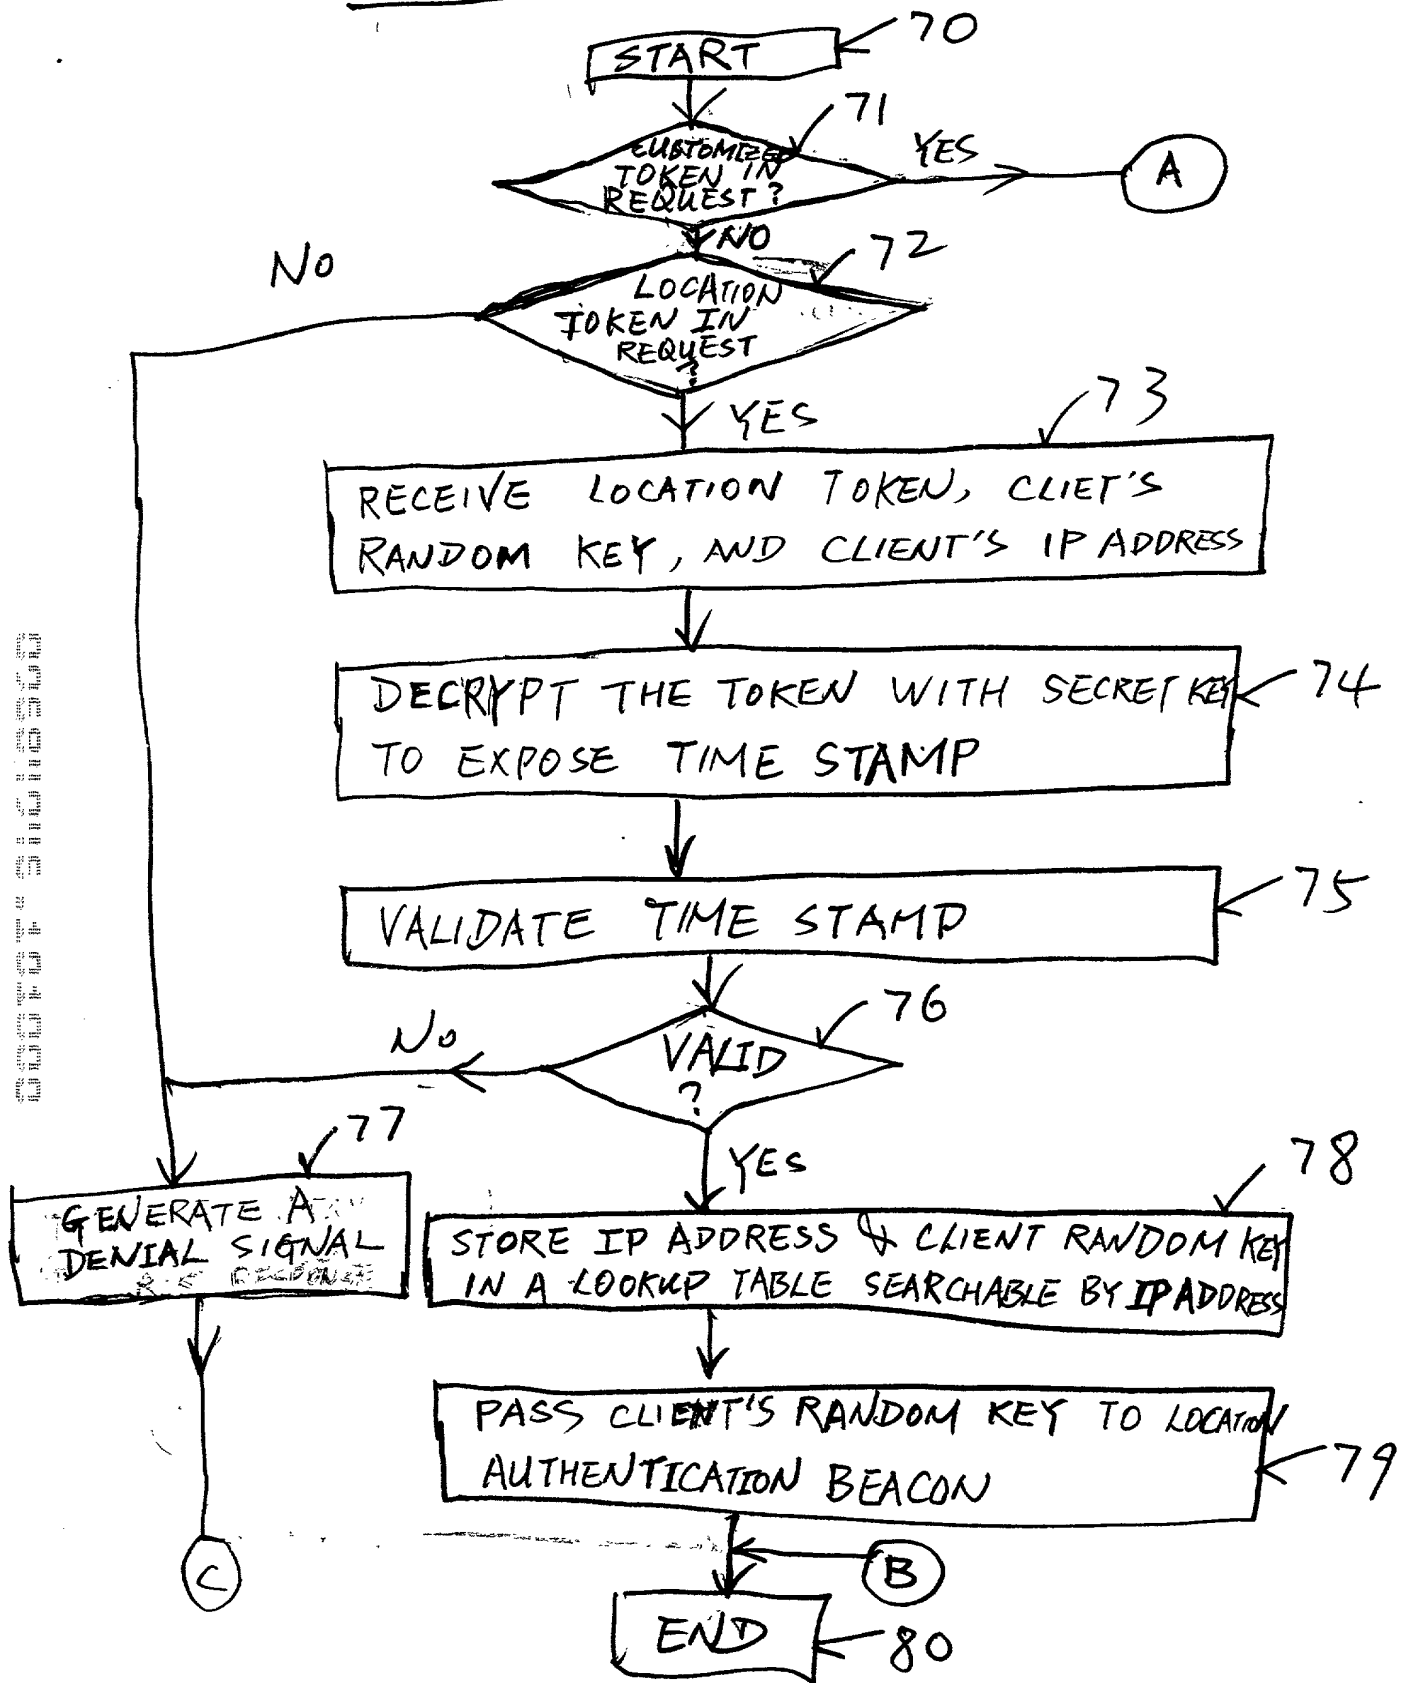 START
70
71
CUSTOMIZED
TOKEN IN
REQUEST?
YES
A
NO
72
No
LOCATION
TOKEN IN
REQUEST
?
YES
73
RECEIVE LOCATION TOKEN, CLIET'S
RANDOM KEY, AND CLIENT'S IP ADDRESS
DECRYPT THE TOKEN WITH SECRET KEY
TO EXPOSE TIME STAMP
74
VALIDATE TIME STAMP
75
VALID
?
76
No
YES
77
GENERATE A
DENIAL SIGNAL
78
STORE IP ADDRESS & CLIENT RANDOM KEY
IN A LOOKUP TABLE SEARCHABLE BY IP ADDRESS
PASS CLIENT'S RANDOM KEY TO LOCATION
AUTHENTICATION BEACON
79
C
B
END
80